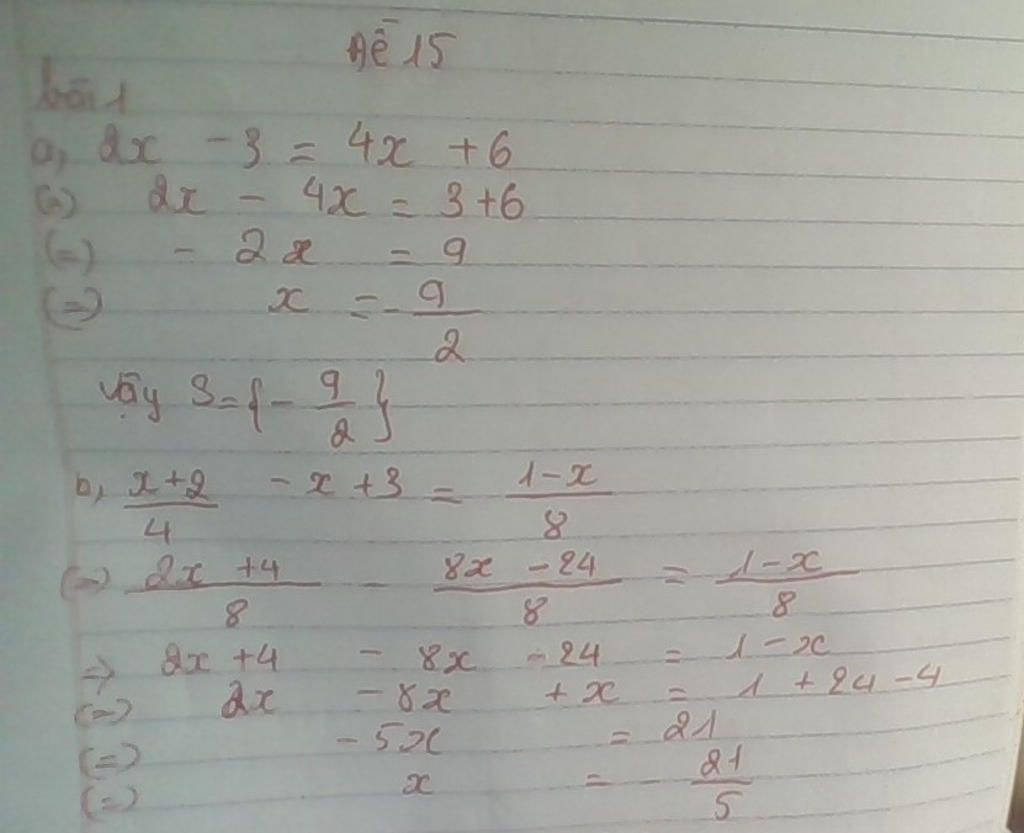 Đề 15
bài 1
a, 2x - 3 = 4x + 6
(=) 2x - 4x = 3+6
(=) - 2x = 9
(=) x = - 9/2
Vậy S = { - 9/2 }
b, x+2/4 - x + 3 = 1-x/8
(=) 2x + 4/8 - 8x - 24/8 = 1-x/8
=> 2x + 4 - 8x - 24 = 1 - x
(=) 2x - 8x + x = 1 + 24 - 4
(=) - 5x = 21
(=) x = - 21/5